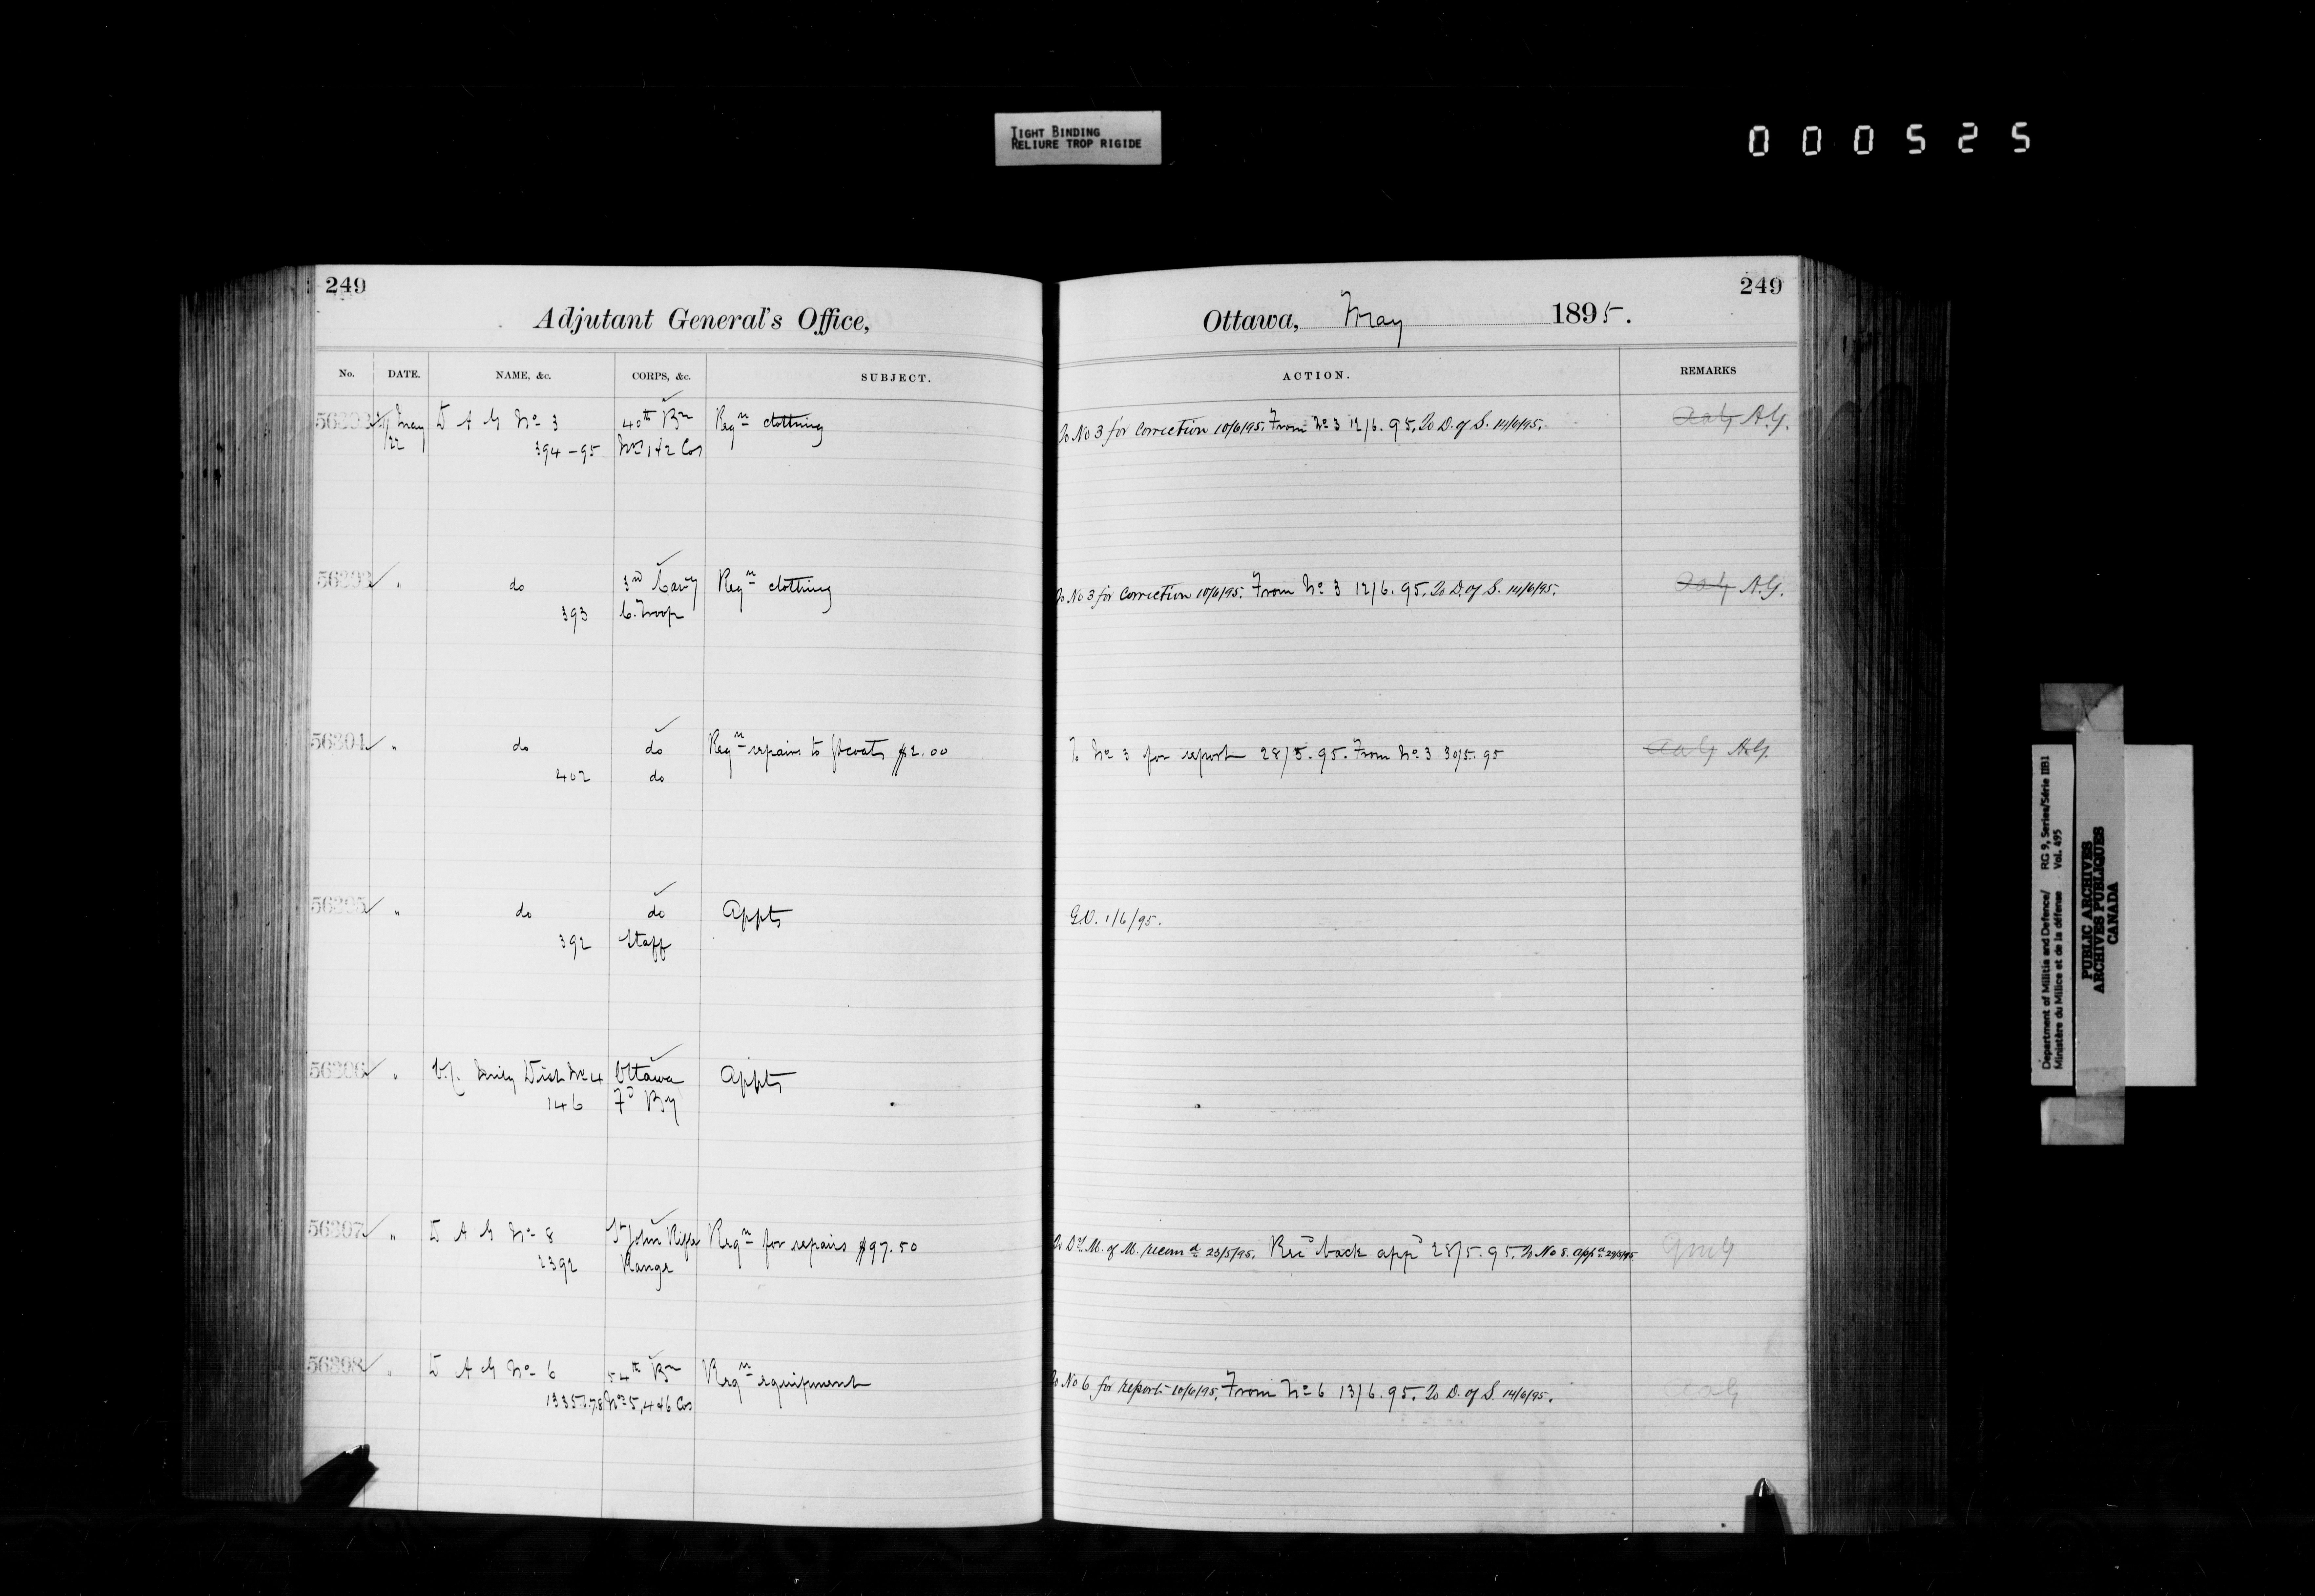 TIGHT BINDING
RELIURE TROP RIGIDE
000525
249
Adjutant General's Office,
No. DATE. NAME, &c. CORPS, &c. SUBJECT.
56302 May D A G No 3 40th Bn Reqn clothing
22 394-95 Nos 1 & 2 Cos
56303 " do 3rd Cavy Reqn clothing
393 C. Troop
56304 " do do Reqn repairs to gtcoats $2.00
402 do
56305 " do do Appts
392 Staff
56306 " Dist No 4 Ottawa Appts
146 Fd By
56307 " D A G No 8 St John Rifle Reqn for repairs $97.50
2392 Range
56308 " D A G No 6 54th Bn Reqn equipment
Nos 5, 4 & 6 Cos
249
Ottawa, May 1895.
ACTION. REMARKS
To No 3 for correction 10/6/95. From No 3 12/6.95. To D. of S. 14/6/95. A.G.
To No 3 for correction 10/6/95. From No 3 12/6.95. To D. of S. 14/6/95. A.G.
To No 3 for report 28/5.95. From No 3 30/5.95 A.G.
G.O. 1/6/95.
To D. M. of M. recomd 23/5/95. Recd back appd 28/5.95. To No 8. appd 29/5/95 QMG
To No 6 for report 10/6/95. From No 6 13/6.95. To D. of S. 14/6/95.
Department of Militia and Defence/ RG 9, Series/Série IIB1
Ministère du Milice et de la défense Vol. 495
PUBLIC ARCHIVES
ARCHIVES PUBLIQUES
CANADA